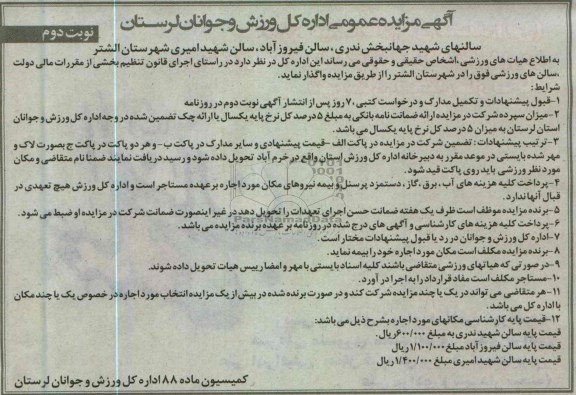 آگهی مزایده عمومی اداره کل ورزش و جوانان لرستان
نوبت دوم
سالنهای شهید جهانبخش ندری، سالن فیروز آباد، سالن شهید امیری شهرستان الشتر
به اطلاع هیات های ورزشی، اشخاص حقیقی و حقوقی می رساند این اداره کل در نظر دارد در راستای اجرای قانون تنظیم بخشی از مقررات مالی دولت
،سالن های ورزشی فوق را در شهرستان الشتر را از طریق مزایده واگذار نماید.
شرایط:
۱-قبول پیشنهادات و تکمیل مدارک و درخواست کتبی ،۷ روز پس از انتشار آگهی نوبت دوم در روزنامه
۲-میزان سپرده شرکت در مزایده ارائه ضمانت نامه بانکی به مبلغ ۵ درصد کل نرخ پایه یکسال یا ارائه چک تضمین شده در وجه اداره کل ورزش و جوانان
استان لرستان به میزان ۵ درصد کل نرخ پایه یکسال می باشد.
۳-ترتیب پیشنهادات : تضمین شرکت در مزایده در پاکت الف -قیمت پیشنهادی و سایر مدارک در پاکت ب- و هر دو پاکت در پاکت ج بصورت لاک و
مهر شده بایستی در موعد مقرر به دبیرخانه اداره کل ورزش استان واقع در خرم آباد تحویل داده شود و رسید دریافت نمایند ضمنا نام متقاضی و مکان
مورد نظر ورزشی باید روی پاکت قید شود.
۴-پرداخت کلیه هزینه های آب، برق، گاز، دستمزد پرسنل و بیمه نیروهای مکان مورد اجاره بر عهده مستاجر است و اداره کل ورزش هیچ تعهدی در
قبال آنها ندارد.
۵-برنده مزایده موظف است ظرف یک هفته ضمانت حسن اجرای تعهدات را تحویل دهد در غیر اینصورت ضمانت شرکت در مزایده او ضبط می شود.
۶-پرداخت کلیه هزینه های کارشناسی و آگهی های درج شده در روزنامه بر عهده برنده مزایده می باشد.
۷-اداره کل ورزش و جوانان در رد یا قبول پیشنهادات مختار است.
۸-برنده مزایده مکلف است مکان مورد اجاره خود را بیمه نماید.
۹-در صورتی که هیاتهای ورزشی متقاضی باشند کلیه اسناد بایستی با مهر و امضا رییس هیات تحویل داده شوند.
۱۰-مستاجر مکلف است مفاد قرارداد را به اجرا در آورد.
۱۱-هر متقاضی می تواند در یک یا چند مزایده شرکت کند و در صورت برنده شده در بیش از یک مزایده انتخاب مورد اجاره در خصوص یک یا چند مکان
با اداره کل می باشد.
۱۲-قیمت پایه کارشناسی مکانهای مورد اجاره بشرح ذیل می باشد:
قیمت پایه سالن شهید ندری به مبلغ ۶۰۰/۰۰۰ ریال.
قیمت پایه سالن فیروز آباد مبلغ ۱/۱۰۰/۰۰۰ ریال
قیمت پایه سالن شهید امیری مبلغ ۱/۴۰۰/۰۰۰ ریال
کمیسیون ماده ۸۸ اداره کل ورزش و جوانان لرستان
ParsNamadData